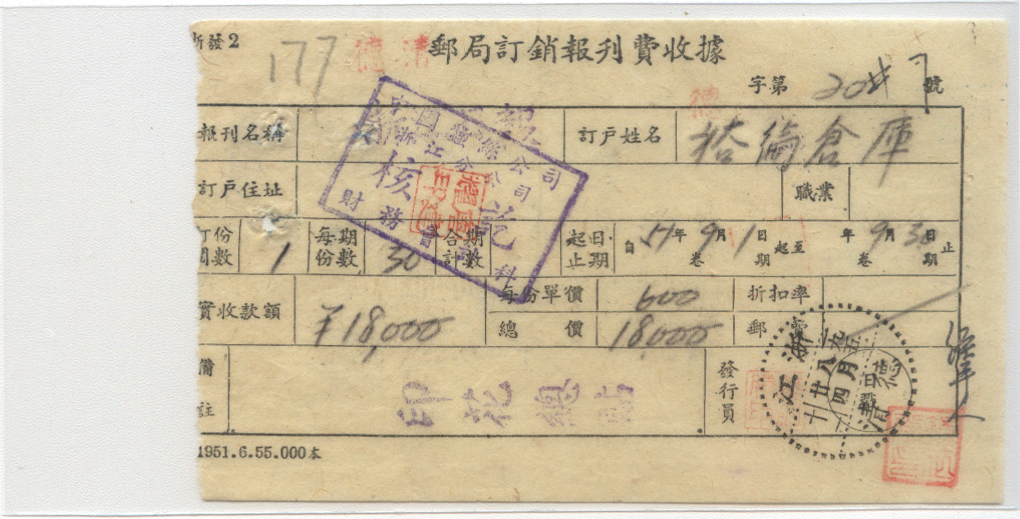 浙發2
177
德清
郵局訂銷報刊費收據
字第 20 號
報刊名稱
訂戶姓名 倉庫
訂戶住址
職業
訂份
圓數 1
每期
份數 30
合期
計數
起日
止期
自 51年9月1日起至 年9月30日止
卷 期 卷 期
實收款額 ¥18,000
每份單價 600
折扣率
總價 18,000
郵
備註
印花總貼
發行員
1951.6.55.000本
中國鹽業公司
浙江分公司
核訖
財務會計科
浙江
八月廿四
德清